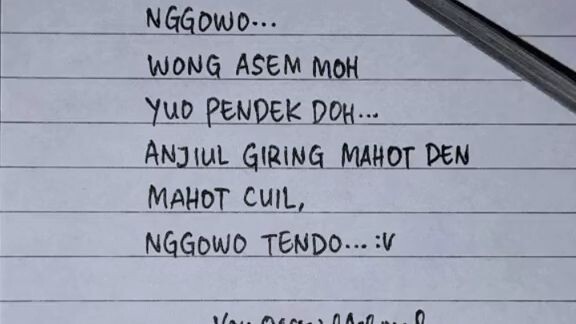 NGGOWO...
WONG ASEM MOH
YUO PENDEK DOH...
ANJIUL GIRING MAHOT DEN
MAHOT CUIL,
NGGOWO TENDO... :V